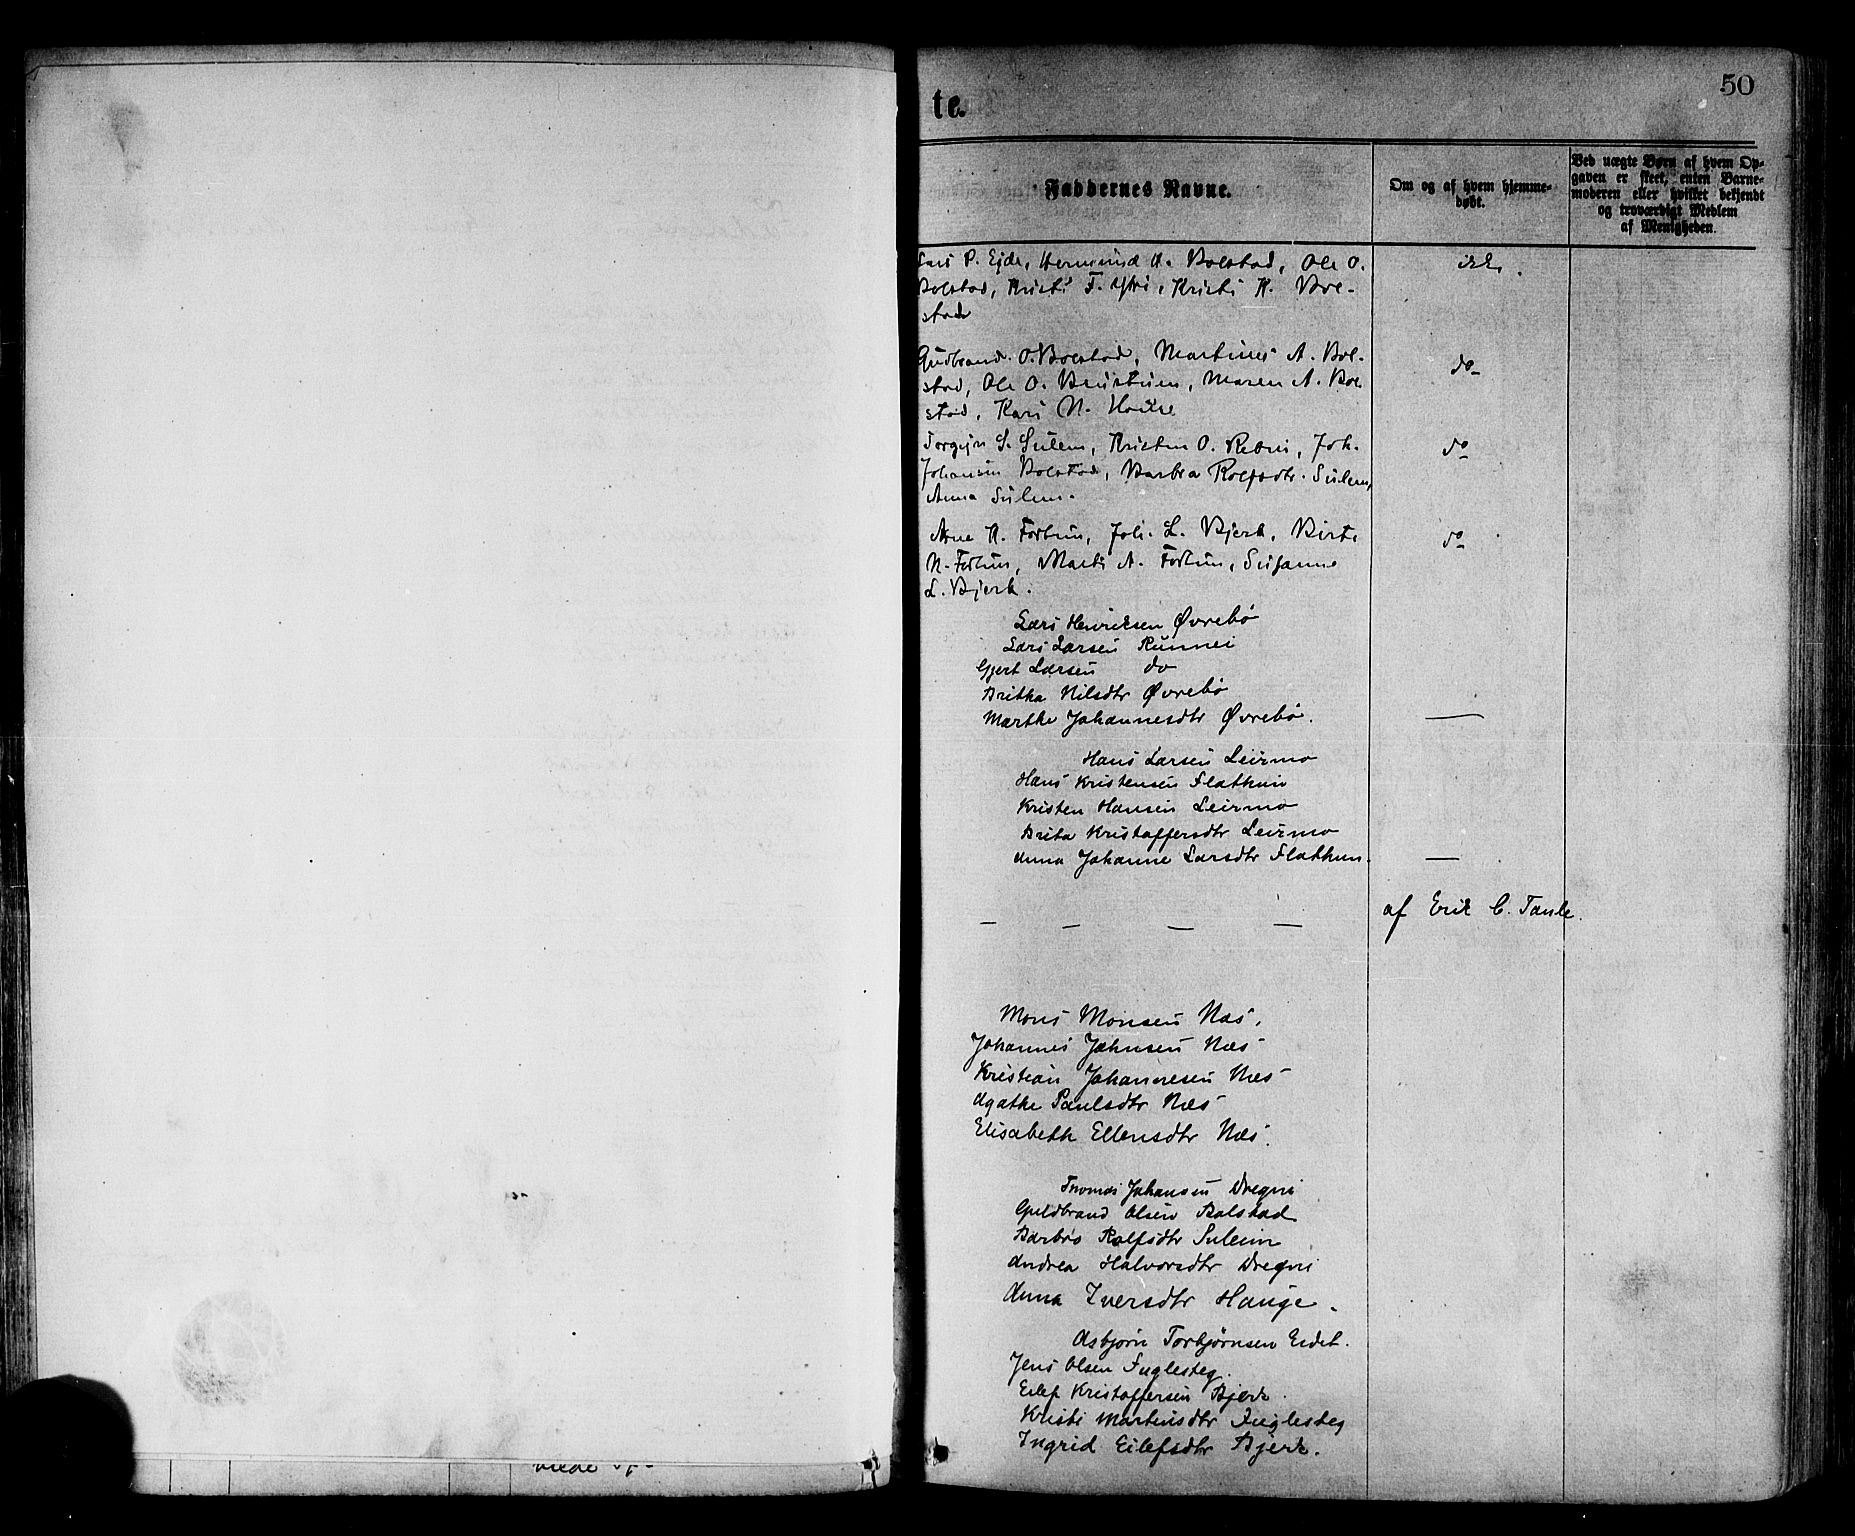 50
te.
Faddernes Navne.
Om og af hvem hjemme-
døbt.
Ved uægte Børn af hvem Op-
gaven er skeet, enten Barne-
moderen eller hvilket bekjendt
og troværdigt Medlem
af Menigheden.
Lars P. Ejde, Hermund A. Bolstad, Ole O.
Bolstad, Kristi F. Kristi K. Bol-
stad
ikke.
Gudbrand O. Bolstad, Martinus A. Bol-
stad, Ole O. Brustuen, Maren A. Bol
stad, Kari N.
do
Torgejr S. Sulem, Kristen O. Joh.
Johansen Bolstad, Barbra Rolfsdtr. Sulem,
Anna Sulem.
do
Arne H. Fortun, Joh. L. Bjerk, Birte
N. Fortun, Marti A. Fortun, Susanne
L. Bjerk.
do
Lars Henriksen Øvrebø
Lars Larsen Runnei
Gjert Larsen do
Britha Nilsdtr Øvrebø
Marthe Johannesdtr Øvrebø. —
Hans Larsen Leirmo
Hans Kristensen Flathun
Kristen Hansen Leirmo
Brita Kristoffersdtr Leirmo
Anna Johanne Larsdtr Flathun. —
— — — — af Erik C. Tanle.
Mons Monsen Næs.
Johannes Johnsen Næs
Kristian Johannesen Næs
Agathe Paulsdtr Næs
Elisabeth Ellensdtr Næs.
Thomas Johansen Dregni
Guldbrand Olsen Bolstad
Barbro Rolfsdtr Suleim
Andrea Halvorsdtr Dregni
Anna Iversdtr Hauge.
Asbjørn Torbjørnsen Eidet.
Jens Olsen Fuglesteg.
Eilef Kristoffersen Bjerk.
Kristi Martinsdtr Fuglesteg
Ingrid Eilefsdtr Bjerk.